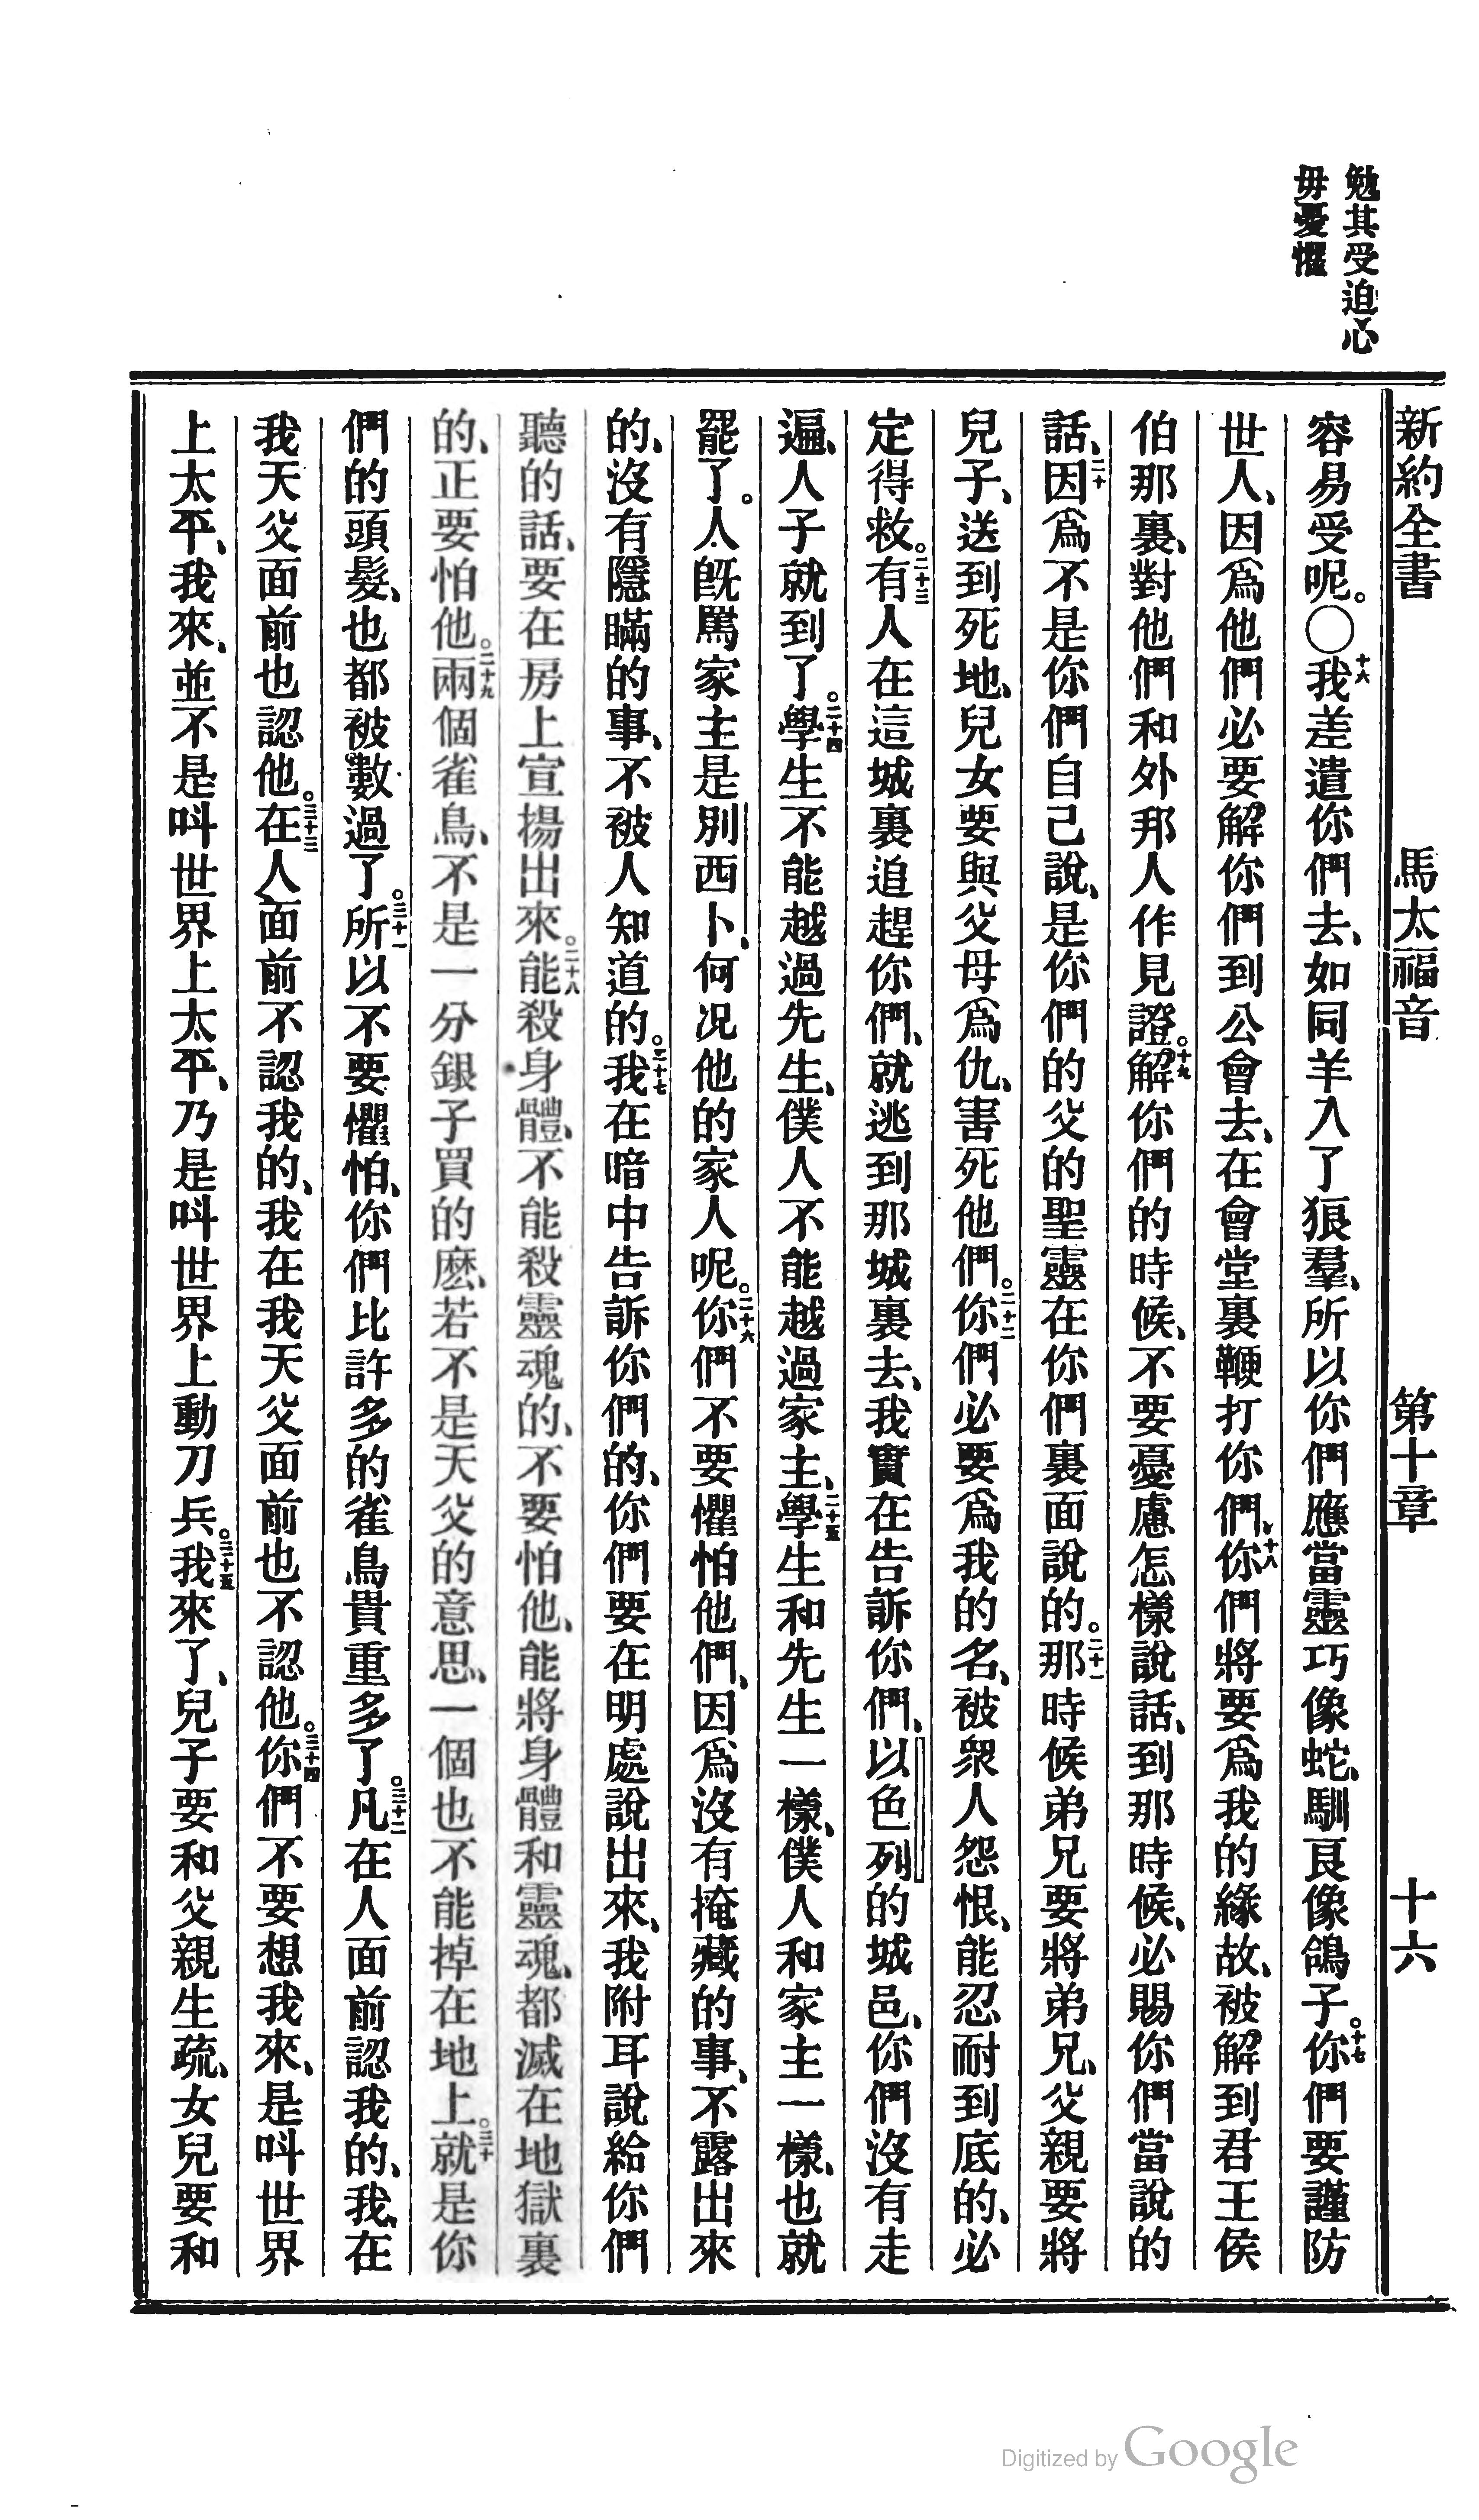 勉其受迫心
毋憂懼
新約全書 馬太福音 第十章 十六
容易受呢。〇十六我差遣你們去、如同羊入了狼羣、所以你們應當靈巧像蛇、馴良像鴿子。十七你們要謹防
世人、因爲他們必要解你們到公會去、在會堂裏鞭打你們、十八你們將要爲我的緣故、被解到君王侯
伯那裏、對他們和外邦人作見證。十九解你們的時候、不要憂慮怎樣說話、到那時候、必賜你們當說的
話、二十因爲不是你們自己說、是你們的父的聖靈在你們裏面說的。二十一那時候弟兄要將弟兄、父親要將
兒子、送到死地、兒女要與父母爲仇、害死他們。二十二你們必要爲我的名、被衆人怨恨、能忍耐到底的、必
定得救。二十三有人在這城裏追趕你們、就逃到那城裏去、我實在告訴你們、以色列的城邑、你們沒有走
遍、人子就到了。二十四學生不能越過先生、僕人不能越過家主、二十五學生和先生一樣、僕人和家主一樣、也就
罷了。人旣罵家主是別西卜、何况他的家人呢。二十六你們不要懼怕他們、因爲沒有掩藏的事、不露出來
的、沒有隱瞞的事、不被人知道的。二十七我在暗中告訴你們的、你們要在明處說出來、我附耳說給你們
聽的話、要在房上宣揚出來。二十八能殺身體、不能殺靈魂的、不要怕他、能將身體和靈魂、都滅在地獄裏
的、正要怕他。二十九兩個雀鳥、不是一分銀子買的麽、若不是天父的意思、一個也不能掉在地上。三十就是你
們的頭髮、也都被數過了。三十一所以不要懼怕、你們比許多的雀鳥貴重多了。三十二凡在人面前認我的、我在
我天父面前也認他。三十三在人面前不認我的、我在我天父面前也不認他。三十四你們不要想我來、是叫世界
上太平、我來、並不是叫世界上太平、乃是叫世界上動刀兵。三十五我來了、兒子要和父親生疏、女兒要和
Digitized by Google